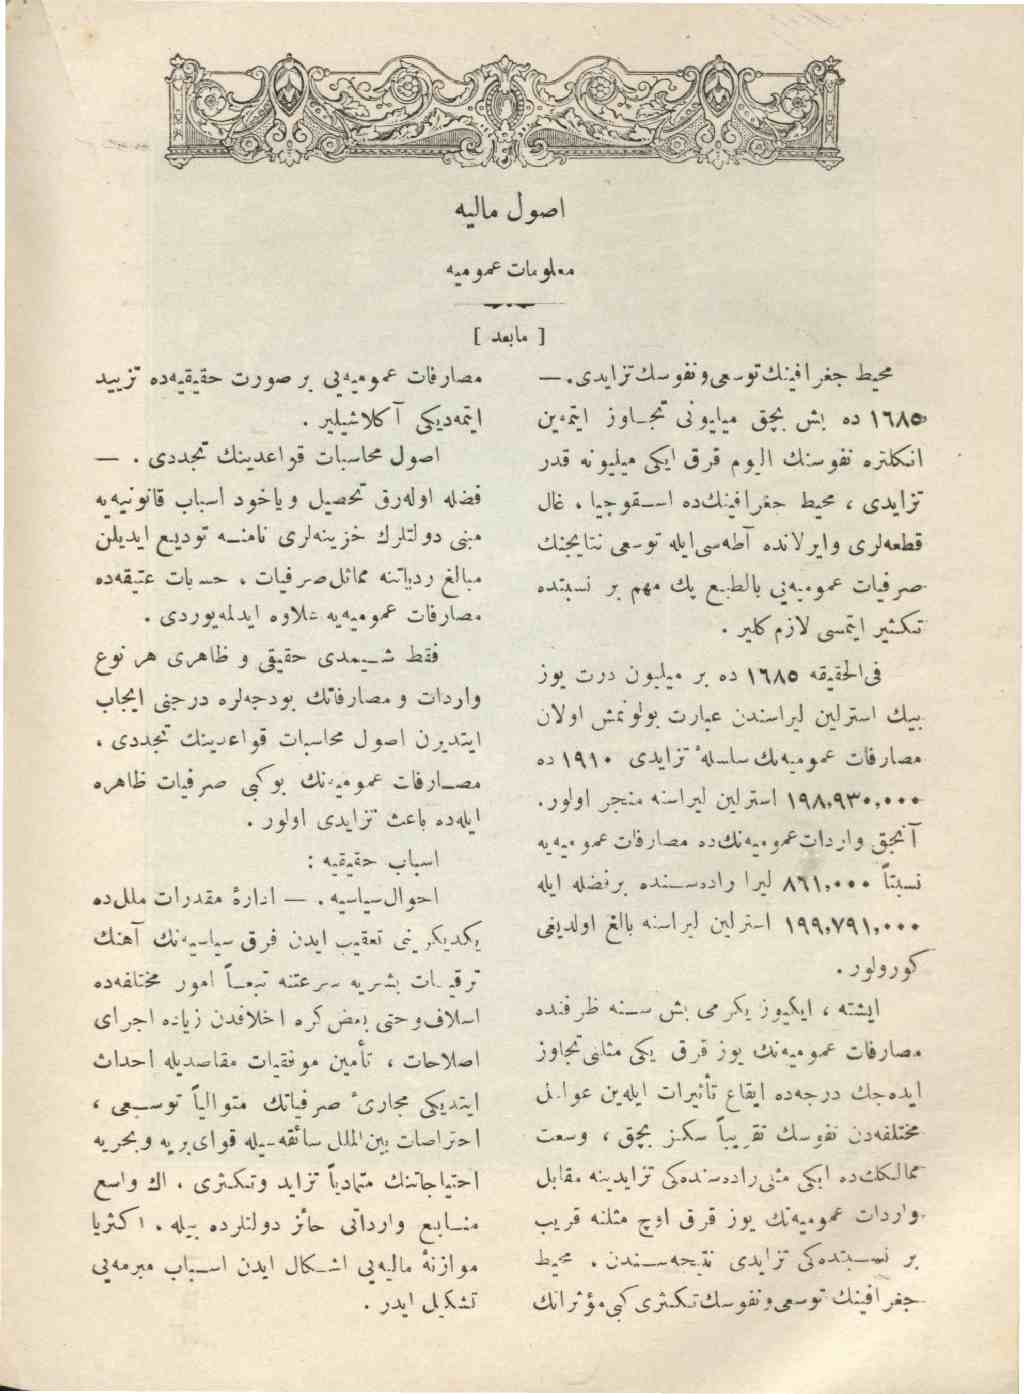 اصول ماليه
معلومات عموميه
[ مابعد ]
محيط جغرافينك توسعى ونفوسك تزايدى . —
١٦٨٥ ده بش بچق ميليونى تجاوز ايتمه‌ين
انكلتره نفوسنك اليوم قرق ايكى ميليونه قدر
تزايدى ، محيط جغرافينك‌ده اسقوچيا ، غال
قطعه‌لرى وايرلانده آطه‌سى‌ايله توسعى نتايجنك
صرفيات عموميه‌يى بالطبع پك مهم بر نسبتده
تكثير ايتمسى لازم كلير .
فى‌الحقيقه ١٦٨٥ ده بر ميليون درت يوز
بيك استرلين ليراسندن عبارت بولونمش اولان
مصارفات عموميه‌نك سلسلهٔ تزايدى ١٩١٠ ده
١٩٨,٩٣٠,٠٠٠ استرلين ليراسنه منجر اولور.
آنجق واردات عموميه‌نك‌ده مصارفات عموميه‌يه
نسبتاً ٨٦١,٠٠٠ ليرا راده‌سنده برفضله ايله
١٩٩,٧٩١,٠٠٠ استرلين ليراسنه بالغ اولديغى
كورولور .
ايشته ، ايكيوز يكرمى بش سنه ظرفنده
مصارفات عموميه‌نك يوز قرق يكى مثلنى تجاوز
ايده‌جك درجه‌ده ايقاع تأثيرات ايله‌ين عوامل
مختلفه‌دن نفوسك تقريباً سكز بچق ، وسعت
ممالكك‌ده ايكى مثلى راده‌سنده‌كى تزايدينه مقابل
واردات عموميه‌نك يوز قرق اوچ مثلنه قريب
بر نسبتده‌كى تزايدى نتيجه‌سندن ، محيط
جغرافينك توسعى ونفوسك تكثرى كبى مؤثراتك
مصارفات عموميه‌يى بر صورت حقيقيه‌ده تزييد
ايتمه‌ديكى آكلاشيلير .
اصول محاسبات قواعدينك تجددى . —
فضله اوله‌رق تحصيل وياخود اسباب قانونيه‌يه
مبنى دولتلرك خزينه‌لرى نامنه توديع ايديلن
مبالغ ردياتنه مماثل صرفيات ، حسابات عتيقه‌ده
مصارفات عموميه‌يه علاوه ايدلمه‌يوردى .
فقط شيمدى حقيقى و ظاهرى هر نوع
واردات ومصارفاتك بودجه‌لره درجنى ايجاب
ايتديرن اصول محاسبات قواعدينك تجددى ،
مصارفات عموميه‌نك بوكبى صرفيات ظاهره
ايله‌ده باعث تزايدى اولور .
اسباب حقيقيه :
احوال سياسيه . — ادارهٔ مقدرات ملل‌ده
يكديكرينى تعقيب ايدن فرق سياسيه‌نك آهنك
ترقيات بشريه سرعتنه تبعاً امور مختلفه‌ده
اسلاف وحتى بعض كره اخلافدن زياده اجراى
اصلاحات ، تأمين موفقيات مقاصديله احداث
ايتديكى مجارئ صرفياتك متوالياً توسعى ،
احتراصات بين‌الملل سائقه‌سيله قواى بريه وبحريه
احتياجاتنك متمادياً تزايد وتكثرى ، اك واسع
منابع وارداتى حائز دولتلرده بيله ، اكثريا
موازنهٔ ماليه‌يى اشكال ايدن اسباب مبرمه‌يى
تشكيل ايدر .